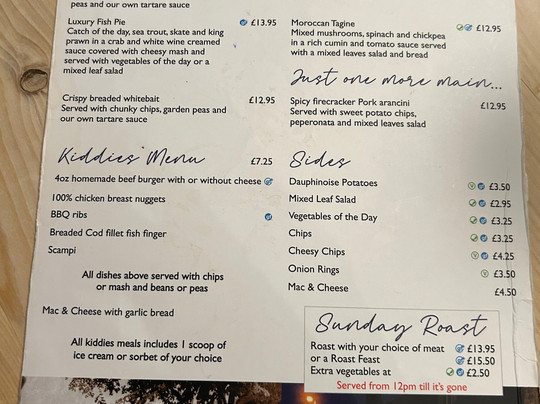 peas and our own tartare sauce
Luxury Fish Pie £13.95
Catch of the day, sea trout, skate and king
prawn in a crab and white wine creamed
sauce covered with cheesy mash and
served with vegetables of the day or a
mixed leaf salad
Crispy breaded whitebait £12.95
Served with chunky chips, garden peas and
our own tartare sauce
Kiddies' Menu £7.25
4oz homemade beef burger with or without cheese
100% chicken breast nuggets
BBQ ribs
Breaded Cod fillet fish finger
Scampi
All dishes above served with chips
or mash and beans or peas
Mac & Cheese with garlic bread
All kiddies meals includes 1 scoop of
ice cream or sorbet of your choice
Moroccan Tagine £12.95
Mixed mushrooms, spinach and chickpea
in a rich cumin and tomato sauce served
with a mixed leaves salad and bread
Just one more main...
Spicy firecracker Pork arancini £12.95
Served with sweet potato chips,
peperonata and mixed leaves salad
Sides
Dauphinoise Potatoes £3.50
Mixed Leaf Salad £2.95
Vegetables of the Day £3.25
Chips £3.25
Cheesy Chips £4.25
Onion Rings £3.50
Mac & Cheese £4.50
Sunday Roast
Roast with your choice of meat £13.95
or a Roast Feast £15.50
Extra vegetables at £2.50
Served from 12pm till it's gone